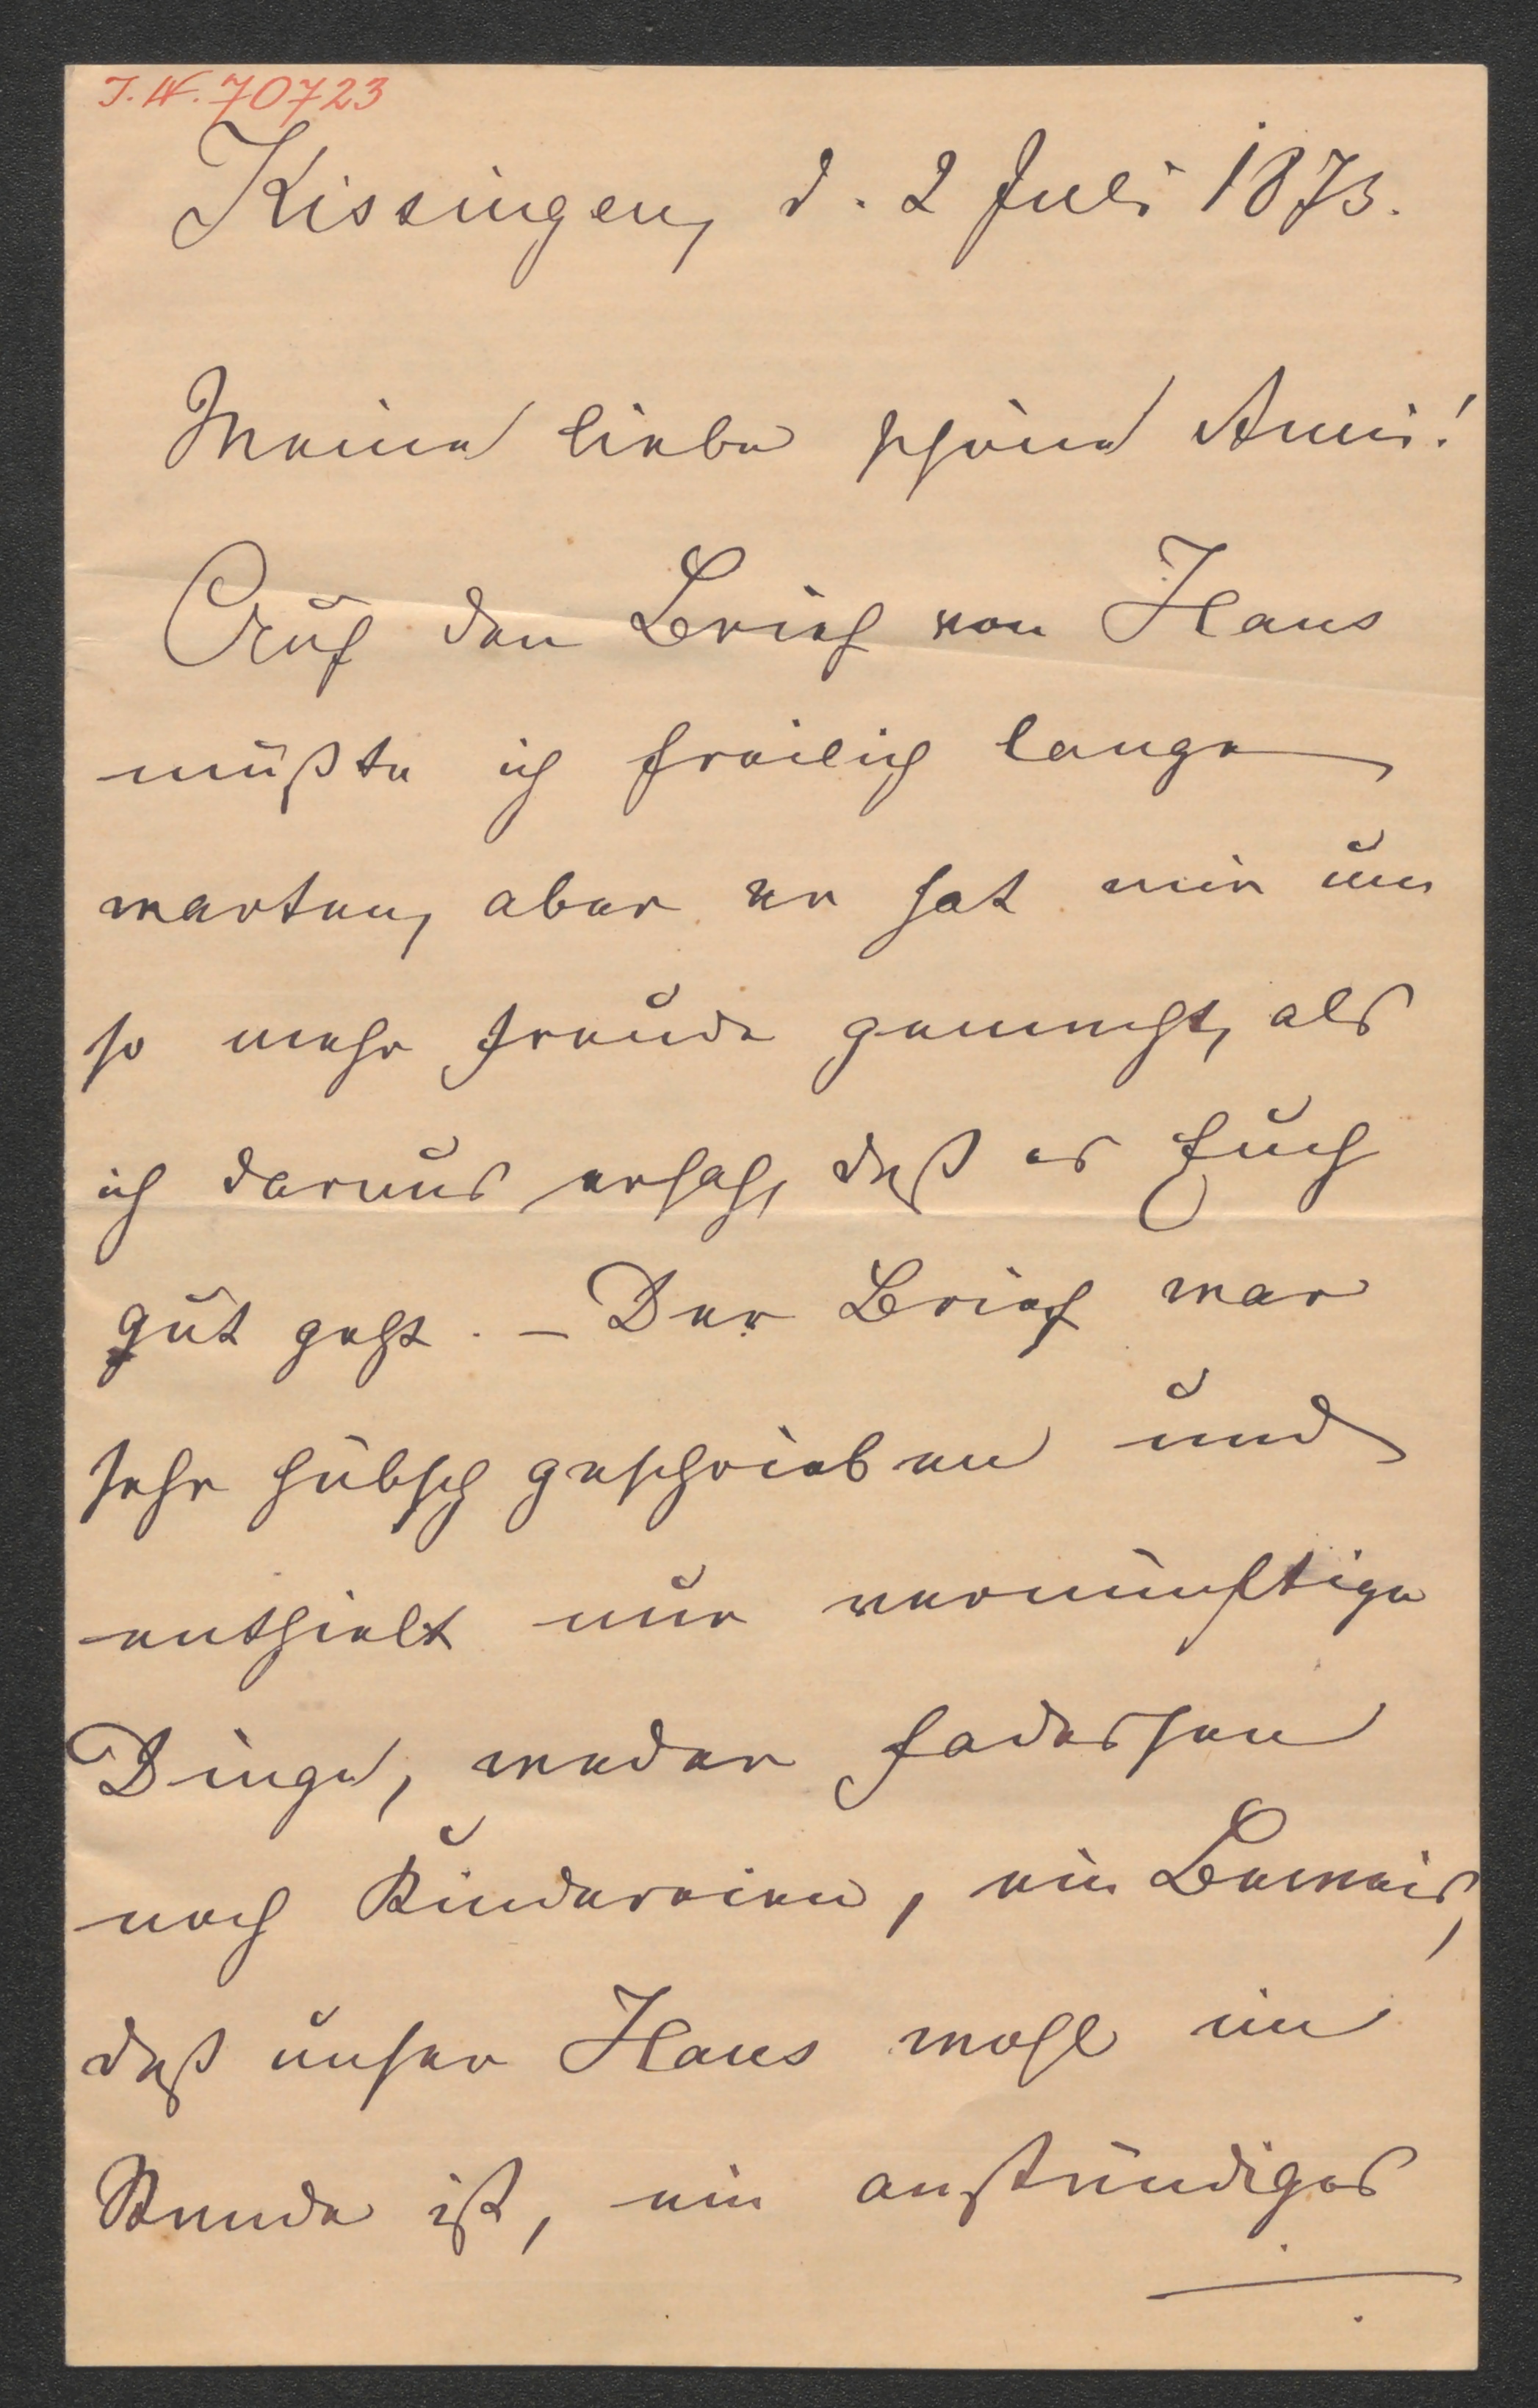 J. N. 70723
Kissingen, d. 2 Juli 1873.
Meine liebe schöne Ami!
Auf den Brief von Hans
mußte ich freilich lange
warten, aber er hat mir um
so mehr Freude gemacht, als
ich daraus ersah, daß es Euch
gut geht. – Der Brief war
sehr hübsch geschrieben und
enthielt nur vernünftige
Dinge, weder Fadessen
noch Kindereien, ein Beweis,
daß unser Hans wohl im
Stande ist, ein anständiges